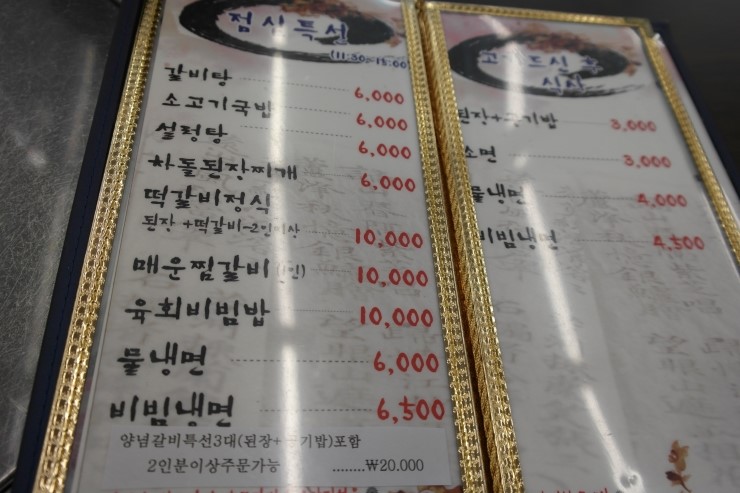 점심특선
(11:30~15:00)
갈비탕 6,000
소고기국밥 6,000
설렁탕 6,000
차돌된장찌개 6,000
떡갈비정식
된장+떡갈비-2인이상 10,000
매운찜갈비(1인) 10,000
육회비빔밥 10,000
물냉면 6,000
비빔냉면 6,500
양념갈비특선3대(된장+공기밥)포함
2인분이상주문가능 ........₩20.000
고기드신 후
식사
된장+공기밥 3,000
소면 3,000
물냉면 4,000
비빔냉면 4,500